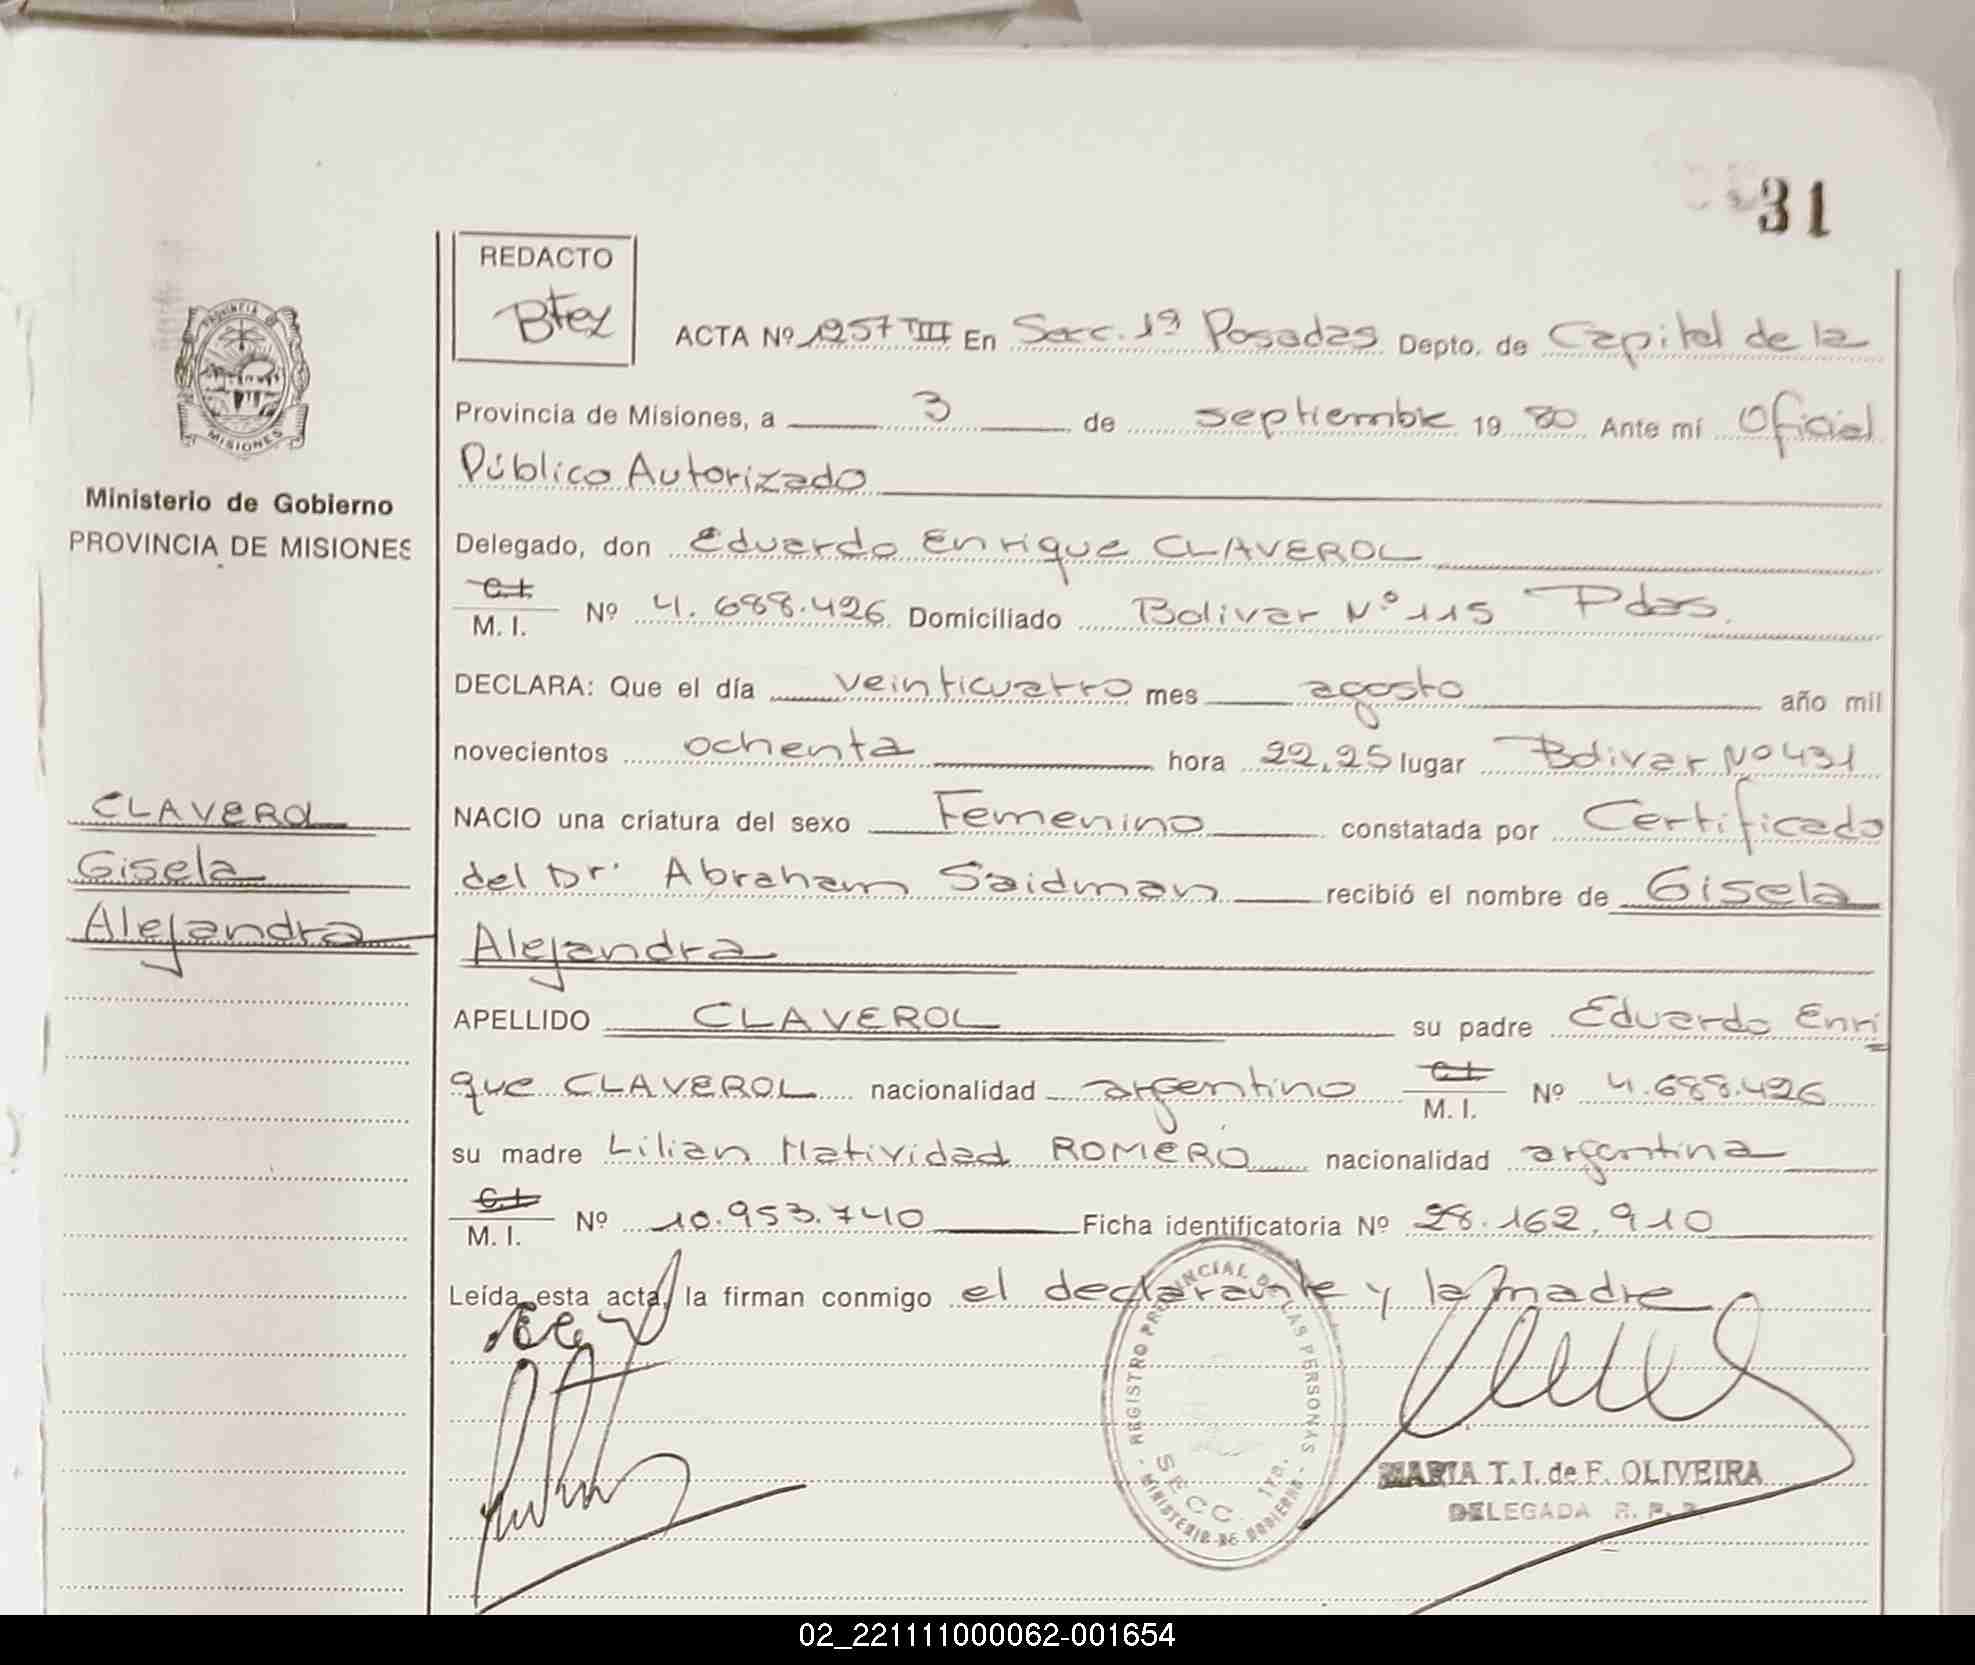 31
REDACTO
Btez
ACTA Nº 1257 TIII En Secc. 1ª Posadas Depto. de Capital de la
Provincia de Misiones, a 3 de septiembre 19 80 Ante mí Oficial
Público Autorizado
Delegado, don Eduardo Enrique CLAVEROL
C.I.
M. I. Nº 4.688.426 Domiciliado Bolivar Nº 115 Pdas.
DECLARA: Que el día veinticuatro mes agosto año mil
novecientos ochenta hora 22,25 lugar Bolivar Nº 431
NACIO una criatura del sexo Femenino constatada por Certificado
del Dr. Abraham Saidman recibió el nombre de Gisela
Alejandra
APELLIDO CLAVEROL su padre Eduardo Enri
que CLAVEROL nacionalidad argentino C.I. M. I. Nº 4.688.426
su madre Lilian Natividad ROMERO nacionalidad argentina
C.I.
M. I. Nº 10.953.740 Ficha identificatoria Nº 28.162.910
Leída esta acta, la firman conmigo el declarante y la madre
PROVINCIA DE
MISIONES
Ministerio de Gobierno
PROVINCIA DE MISIONES
CLAVEROL
Gisela
Alejandra
REGISTRO PROVINCIAL DE LAS PERSONAS
SECC. 1ra.
MINISTERIO DE GOBIERNO
MARIA T. I. de F. OLIVEIRA
DELEGADA R. P. P.
02_221111000062-001654